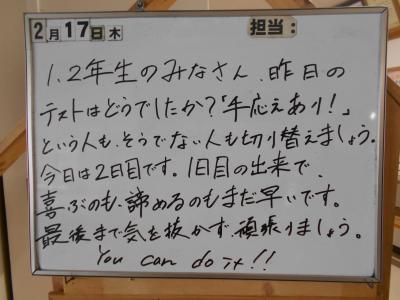 2月17日木 担当:
1、2年生のみなさん、昨日の
テストはどうでしたか?「手応えあり!」
という人も、そうでない人も切り替えましょう。
今日は2日目です。1日目の出来で、
喜ぶのも、諦めるのもまだ早いです。
最後まで気を抜かず、頑張りましょう。
You can do it!!